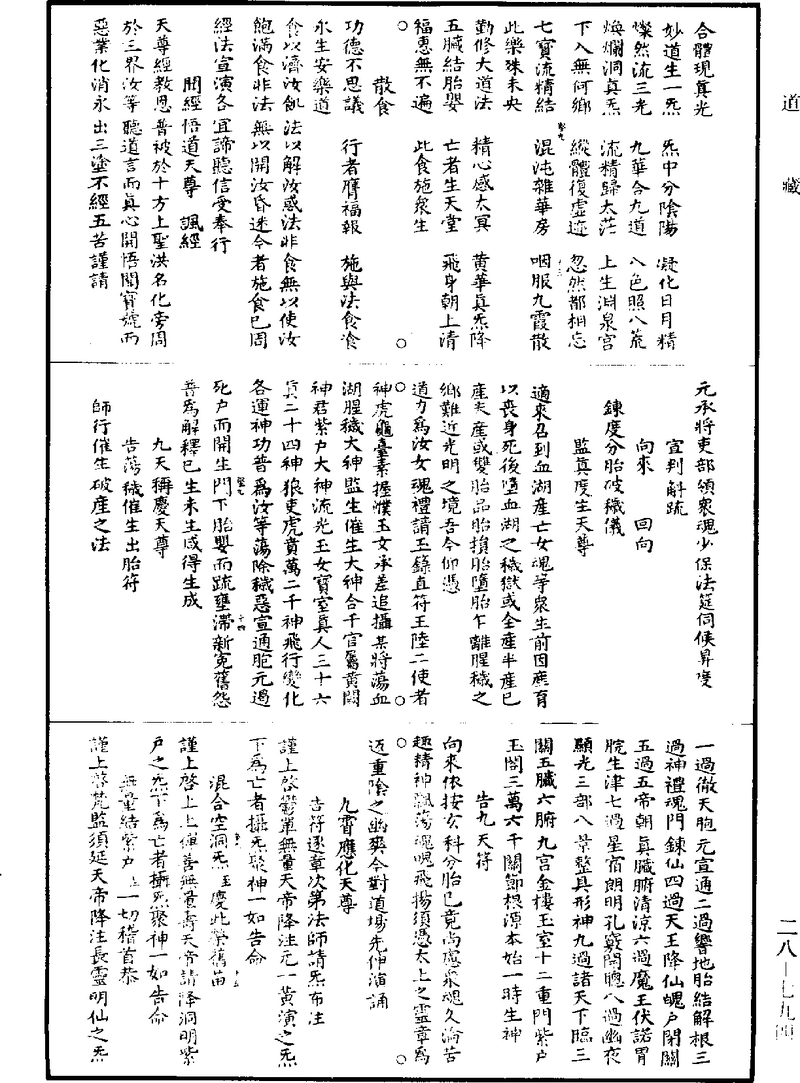 道藏
合體現真光
妙道生一炁　炁中分陰陽　凝化日月精
燦然流三光　九華合九道　八色照八荒
煥爛洞真炁　流精歸太茫　上生淵泉宮
下入無何鄉　縱體復虛迹　忽然都相忘
七寶流精結　混沌雜華房　咽服九霞散
此樂殊未央
勤修大道法　精心感太冥　黃華真炁降
五臟結胎嬰　亡者生天堂　飛身朝上清
福惠無不遍　此食施衆生
散食
功德不思議　行者膺福報　施與法食飡
永生安樂道
食以濟汝飢法以解汝惑法非食無以使汝
飽滿食非法無以開汝昏迷今者施食已周
經法宣演各宜諦聽信受奉行
聞經悟道天尊　諷經
天尊經教恩普被於十方上聖洪名化旁周
於三界汝等聽道言而真心開悟聞寶號而
惡業化消永出三塗不經五苦謹請
元承將吏部領衆魂少保法筵伺候昇度
宣判斛疏
向來　回向
鍊度分胎破穢儀
監真度生天尊
適來召到血湖產亡女魂等衆生前因產育
以喪身死後墮血湖之穢獄或全產半產已
產未產或雙胎品胎損胎墮胎乍離腥穢之
鄉難近光明之境吾今仰憑
道力為汝女魂禮請玉籙直符王陸二使者
神虎龜臺素握濮玉女承差追攝某將蕩血
湖腥穢大神監生催生大神合千官屬黃闕
神君紫戶大神流光玉女寶室真人三十六
真二十四神狼吏虎賁萬二千神飛行變化
各運神功普為汝等蕩除穢惡宣通胞元過
死戶而開生門下胎嬰而疏壅滯新冤舊怨
普為解釋已生未生咸得生成
九天稱慶天尊
告蕩穢催生出胎符
師行催生破產之法
一過徹天胞元宣通二過響地胎結解根三
過神禮魂門鍊仙四過天王降仙魄戶閉關
五過五帝朝真臟腑清涼六過魔王伏諾胃
脘生津七過星宿朗明孔竅開聰八過幽夜
顯光三部八景整具形神九過諸天下臨三
關五臟六腑九宮金樓玉室十二重門紫戶
玉閤三萬六千關節根源本始一時生神
告九天符
向來依按玄科分胎已竟尚慮衆魂久淪苦
趣精神飄蕩魂魄飛揚須憑太上之靈章為
迓重陰之幽爽今對道場先伸演誦
九霄應化天尊
告符逐章次第法師請炁布注
謹上啓鬱單無量天帝降注元一黃演之炁
下為亡者攝炁聚神一如告命
混合空洞炁至慶此榮舊苗
謹上啓上上禪善無量壽天帝請降洞明紫
戶之炁下為亡者攝炁聚神一如告命
無量結紫戶至一切稽首恭
謹上啓梵監須延天帝降注長靈明仙之炁
二八—七九四